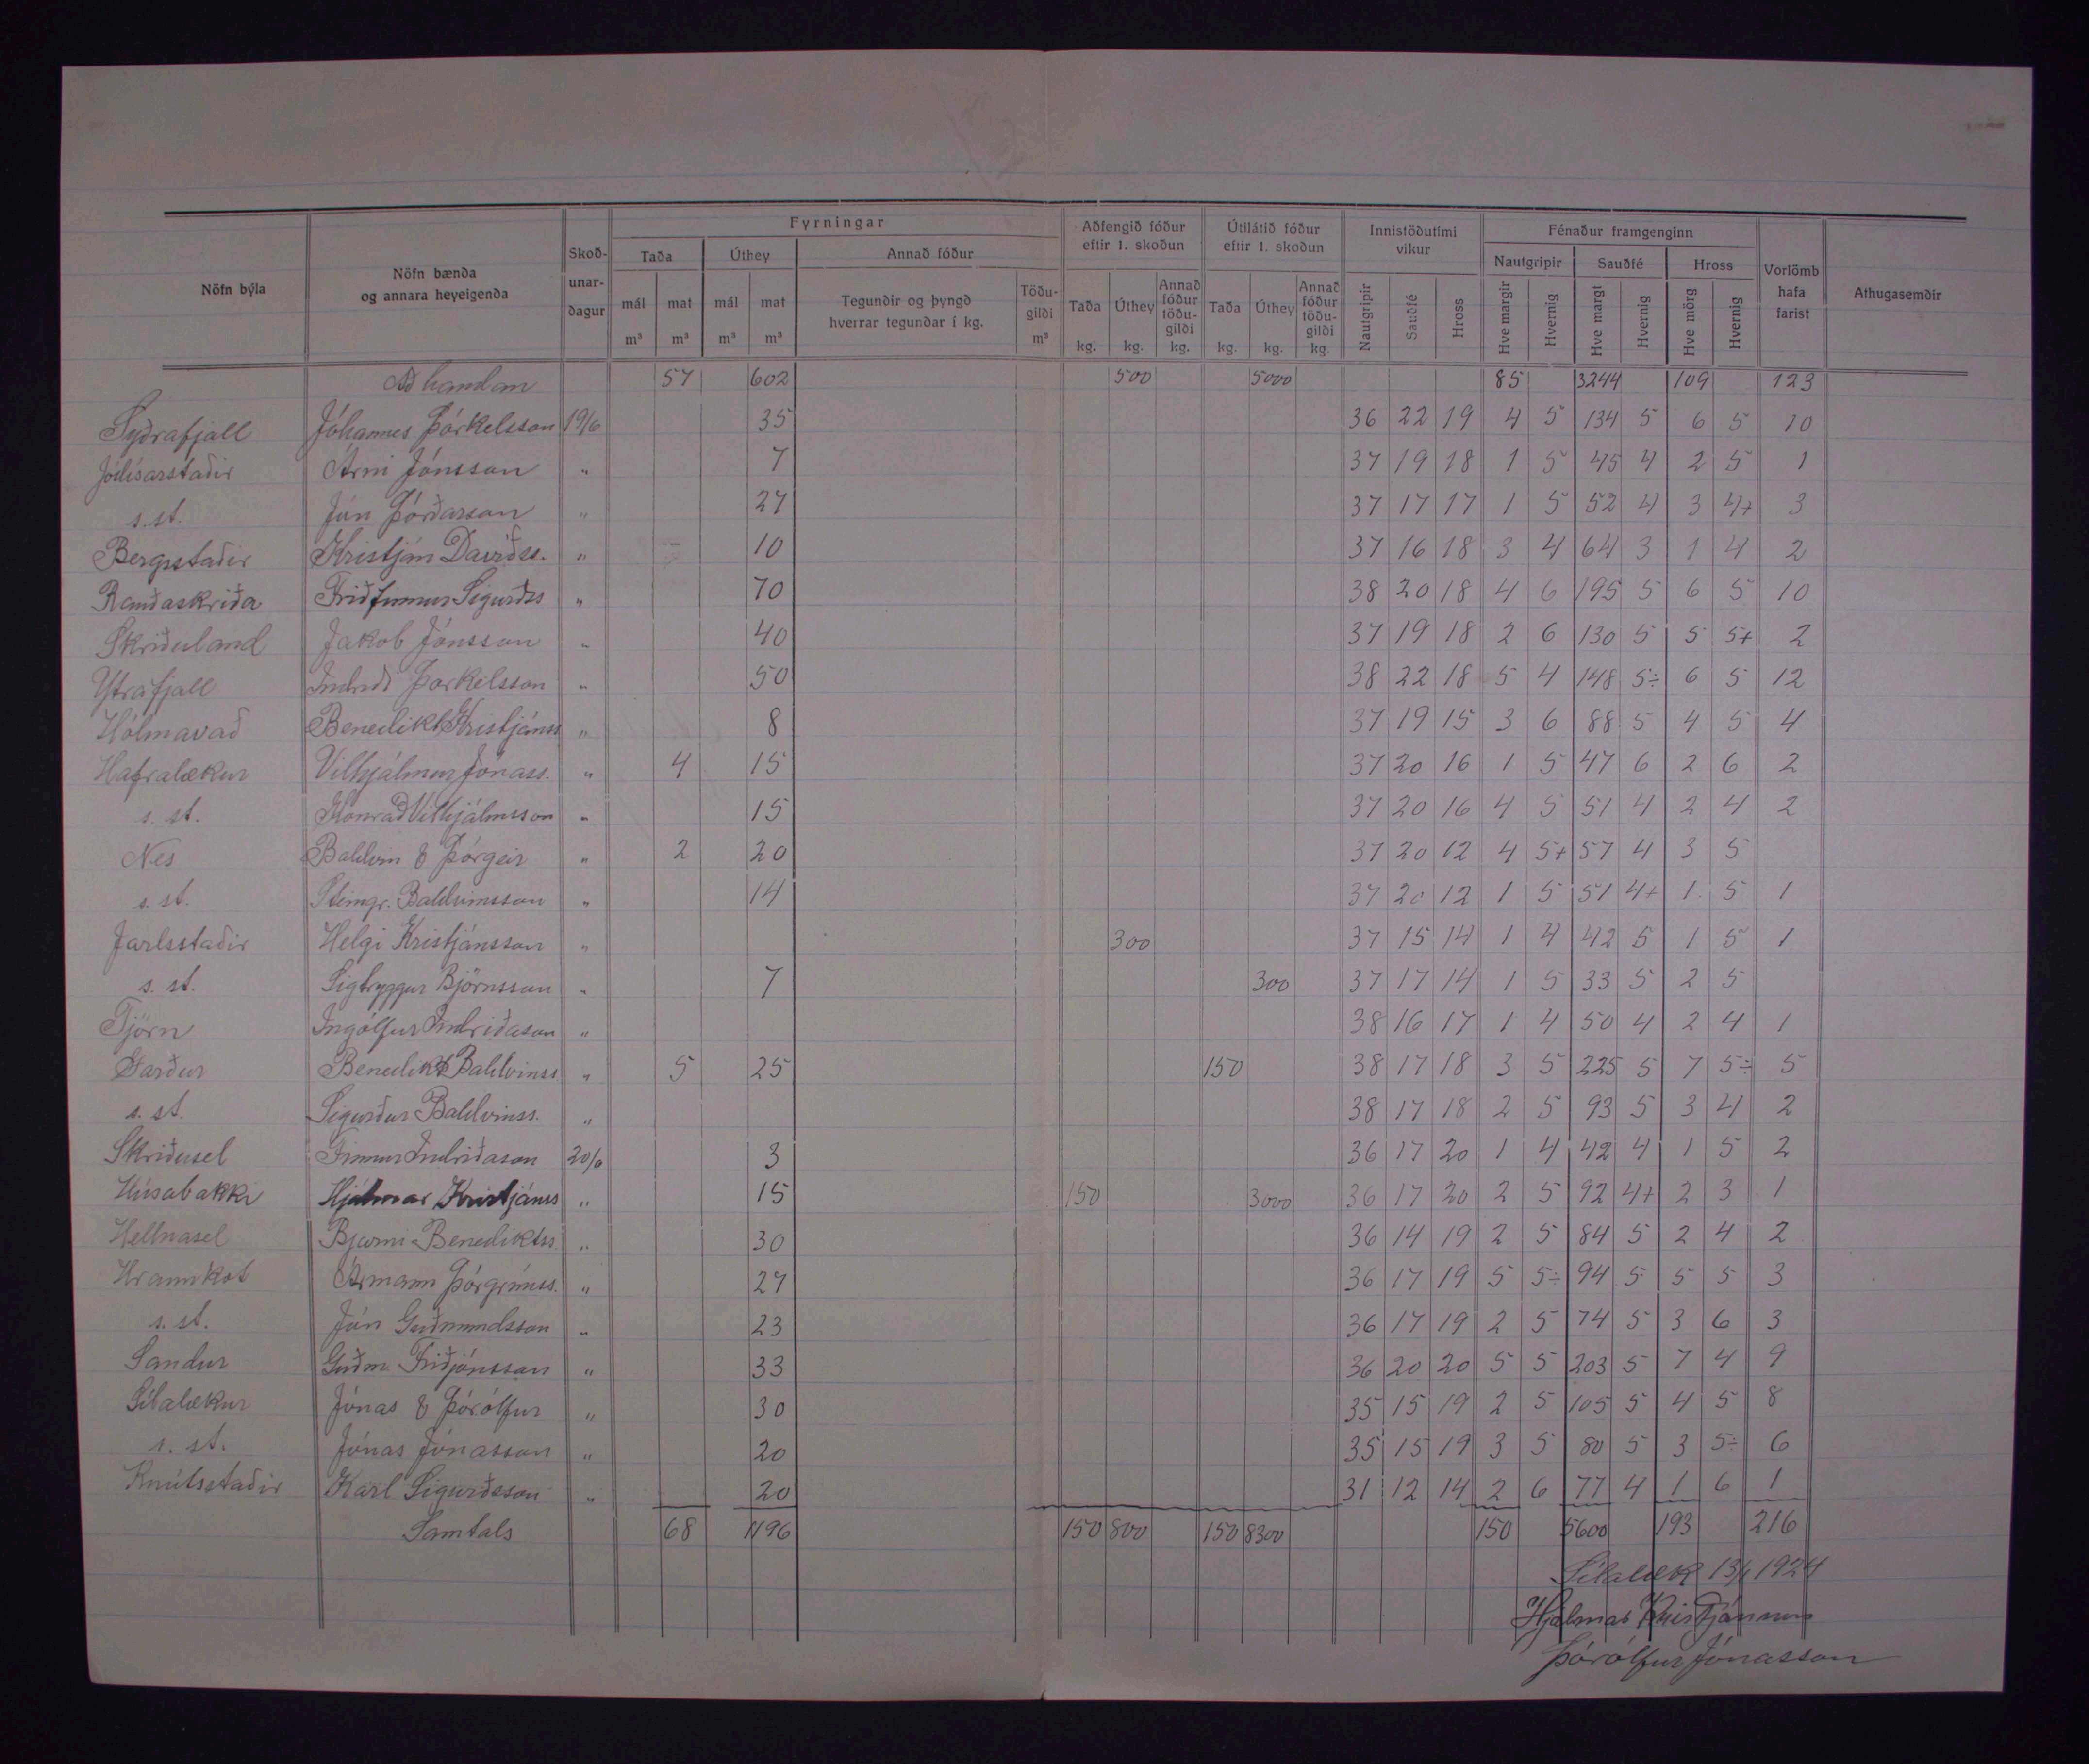 Fyrningar
Aðfengið fóður eftir 1. skoðun
Útilátið fóður eftir 1. skoðun
Innistöðutími vikur
Fénaður framgenginn
Nöfn býla
Nöfn bænda og annara heyeigenda
Skoð-unar-dagur
Taða Úthey Annað fóður
mál m³ mat m³ mál m³ mat m³
Tegundir og þyngd hverrar tegundar í kg.
Töðu-gildi m³
Taða kg. Úthey kg. Annað fóður töðu-gildi kg.
Taða kg. Úthey kg. Annað fóður töðu-gildi kg.
Nautgripir Sauðfé Hross
Nautgripir Sauðfé Hross
Hve margir Hvernig Hve margt Hvernig Hve mörg Hvernig
Vorlömb hafa farist
Athugasemdir
Að handan 57 602 500 5000 85 3244 109 123
Syðrafjall Jóhannes Þorkelsson 19/6 35 36 22 19 4 5 134 5 6 5 10
Jódísarstaðir Árni Jónsson " 7 37 19 18 1 5 45 4 2 5 1
s. st. Jón Þórðarson " 27 37 17 17 1 5 52 4 3 4+ 3
Bergsstaðir Kristján Davíðss. " 10 37 16 18 3 4 64 3 1 4 2
Rauðaskriða Friðfinnur Sigurðss " 70 38 20 18 4 6 195 5 6 5 10
Skriðuland Jakob Jónsson " 40 37 19 18 2 6 130 5 5 5+ 2
Ytrafjall Indriði Þorkelsson " 50 38 22 18 5 4 148 5÷ 6 5 12
Hólmavað Benedikt Kristjánss " 8 37 19 15 3 6 88 5 4 5 4
Hafralækur Vilhjálmur Jónass. " 4 15 37 20 16 1 5 47 6 2 6 2
s. st. Konráð Vilhjálmsson " 15 37 20 16 4 5 51 4 2 4 2
Nes Baldvin & Þórgeir " 2 20 37 20 12 4 5+ 57 4 3 5
s. st. Steingr. Baldvinsson " 14 37 20 12 1 5 51 4+ 1 5 1
Jarlsstaðir Helgi Kristjánsson " 300 37 15 14 1 4 42 5 1 5 1
s. st. Sigtryggur Björnsson " 7 300 37 17 14 1 5 33 5 2 5
Tjörn Ingólfur Indriðason " 38 16 17 1 4 50 4 2 4 1
Garður Benedikt Baldvinss " 5 25 150 38 17 18 3 5 225 5 7 5÷ 5
s. st. Sigurður Baldvinss. " 38 17 18 2 5 93 5 3 4 2
Skriðusel Finnur Indriðason 20/6 3 36 17 20 1 4 42 4 1 5 2
Húsabakki Hjálmar Kristjánss " 15 150 3000 36 17 20 2 5 92 4+ 2 3 1
Hellnasel Bjarni Benediktss. " 30 36 14 19 2 5 84 5 2 4 2
Hraunkot Ármann Þórgrímss. " 27 36 17 19 5 5÷ 94 5 5 5 3
s. st. Jón Guðmundsson " 23 36 17 19 2 5 74 5 3 6 3
Sandur Guðm. Friðjónsson " 33 36 20 20 5 5 203 5 7 4 9
Sílalækur Jónas & Þórólfur " 30 35 15 19 2 5 105 5 4 5 8
s. st. Jónas Jónasson " 20 35 15 19 3 5 80 5 3 5÷ 6
Knútsstaðir Karl Sigurðsson " 20 31 12 14 2 6 77 4 1 6 1
Samtals 68 1196 150 800 150 8300 150 5600 193 216
Sílalæk 13/7 1924
Hjálmar Kristjánsson
Þórólfur Jónasson